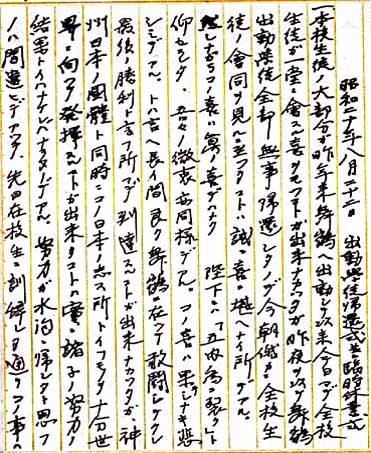 昭和二十年八月二十二日 出動学徒帰還式並臨時休業式
一本校生徒ノ大部分ガ昨年来舞鶴ヘ出動シ以来今日マデ全校
生徒ガ一堂ニ会スル喜ヲモツコトガ出来ナカツタガ昨夜ヲ以テ舞鶴
出動学徒全部無事帰還シタノデ今朝俄ニ全校生
徒ノ会同ヲ見ルニ至ツタコトハ誠ニ喜ニ堪ヘナイ所デアル。
然シナガラコノ喜ハ真ノ喜デハナク 陛下ニハ「五内為ニ裂ク」ト
仰セラレ 吾々ノ微衷モ同様デアル。コノ喜ハ果シナキ悲
シミデアル。トハ言ヘ長イ間良ク舞鶴ニ在ツテ敢闘シテクレタ
最後ノ勝利ト言フ所マデ到達スルコトガ出来ナカツタガ、神
州日本ノ國體ト同時ニコノ日本ノ志ス所トイフモノヲ十分世
界ニ向ツテ発揮スルコトガ出来タコトハ実ニ諸子ノ努力ノ
結果トイハナケレバナラナイノデアル。努力ガ水泡ニ帰シタト思フ
ノハ間違デアツテ、先日在校生ニ訓辞シタ通リコノ事ハ